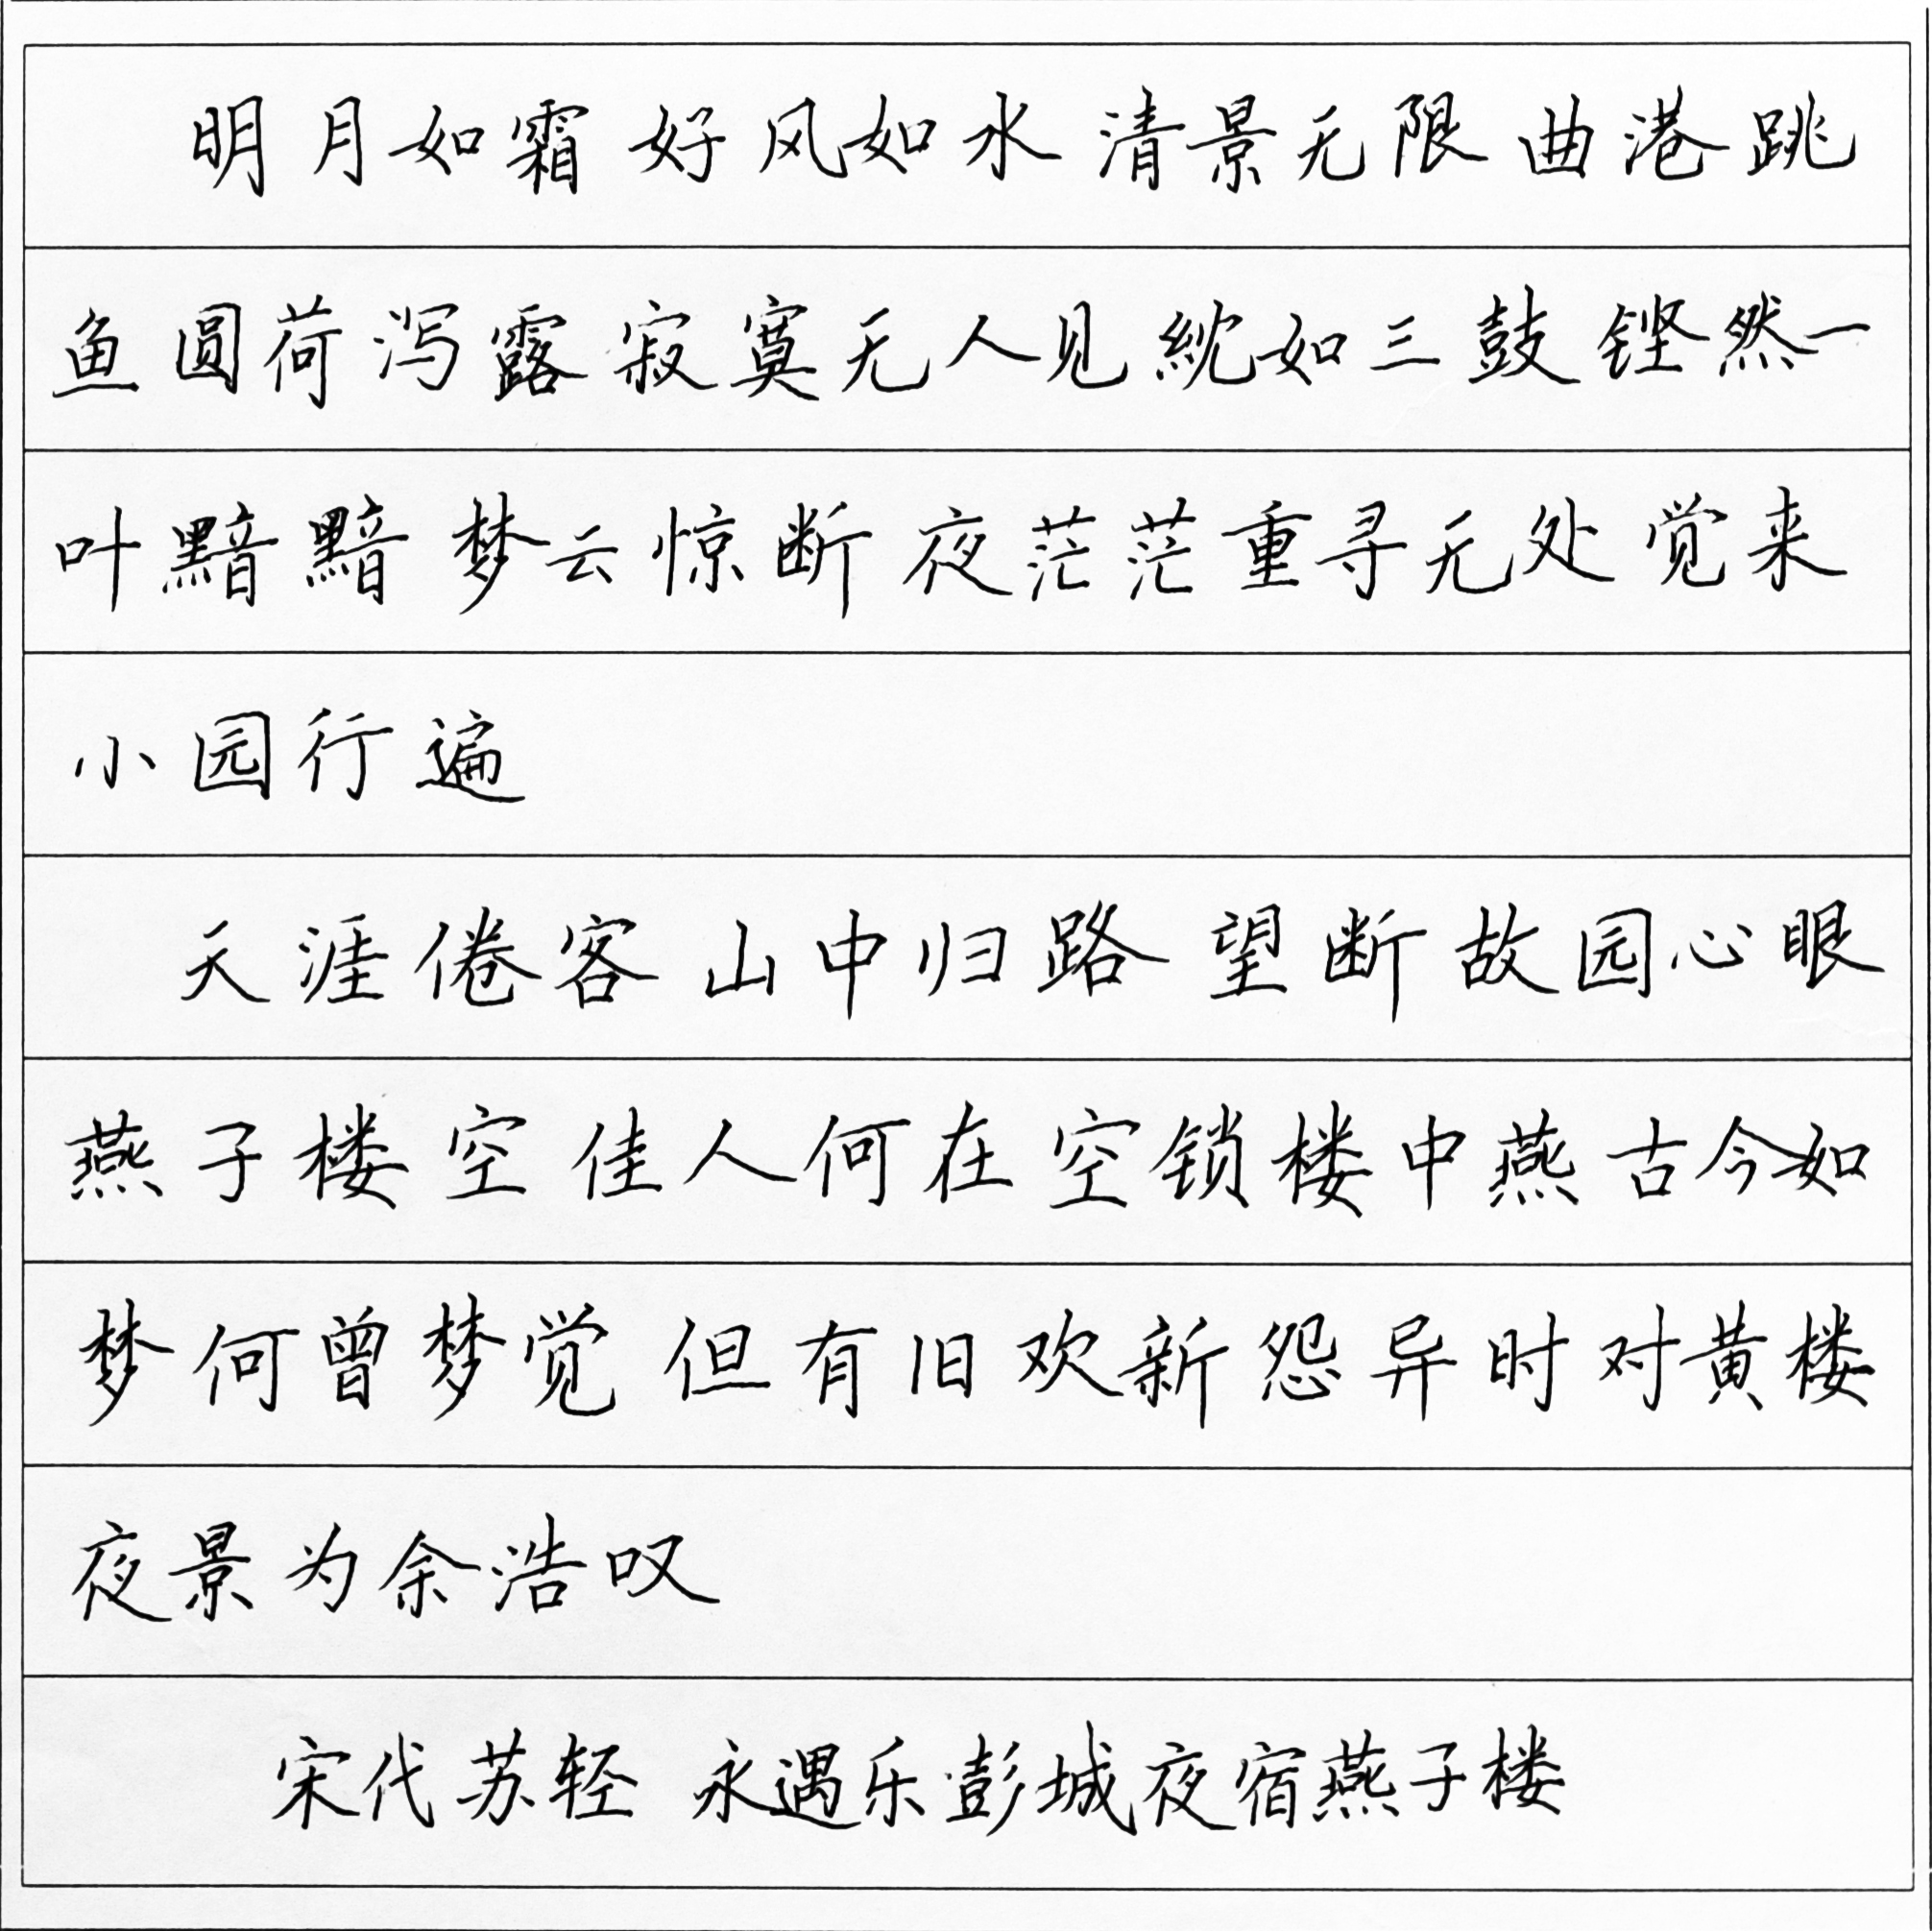 明月如霜 好风如水 清景无限 曲港跳
鱼圆荷泻露寂寞无人见紞如三鼓 铿然一
叶黯黯 梦云惊断 夜茫茫重寻无处觉来
小园行遍
天涯倦客 山中归路 望断故园心眼
燕子楼空 佳人何在 空锁楼中燕古今如
梦何曾梦觉 但有旧欢新怨异时对黄楼
夜景为余浩叹
宋代苏轻 永遇乐彭城夜宿燕子楼